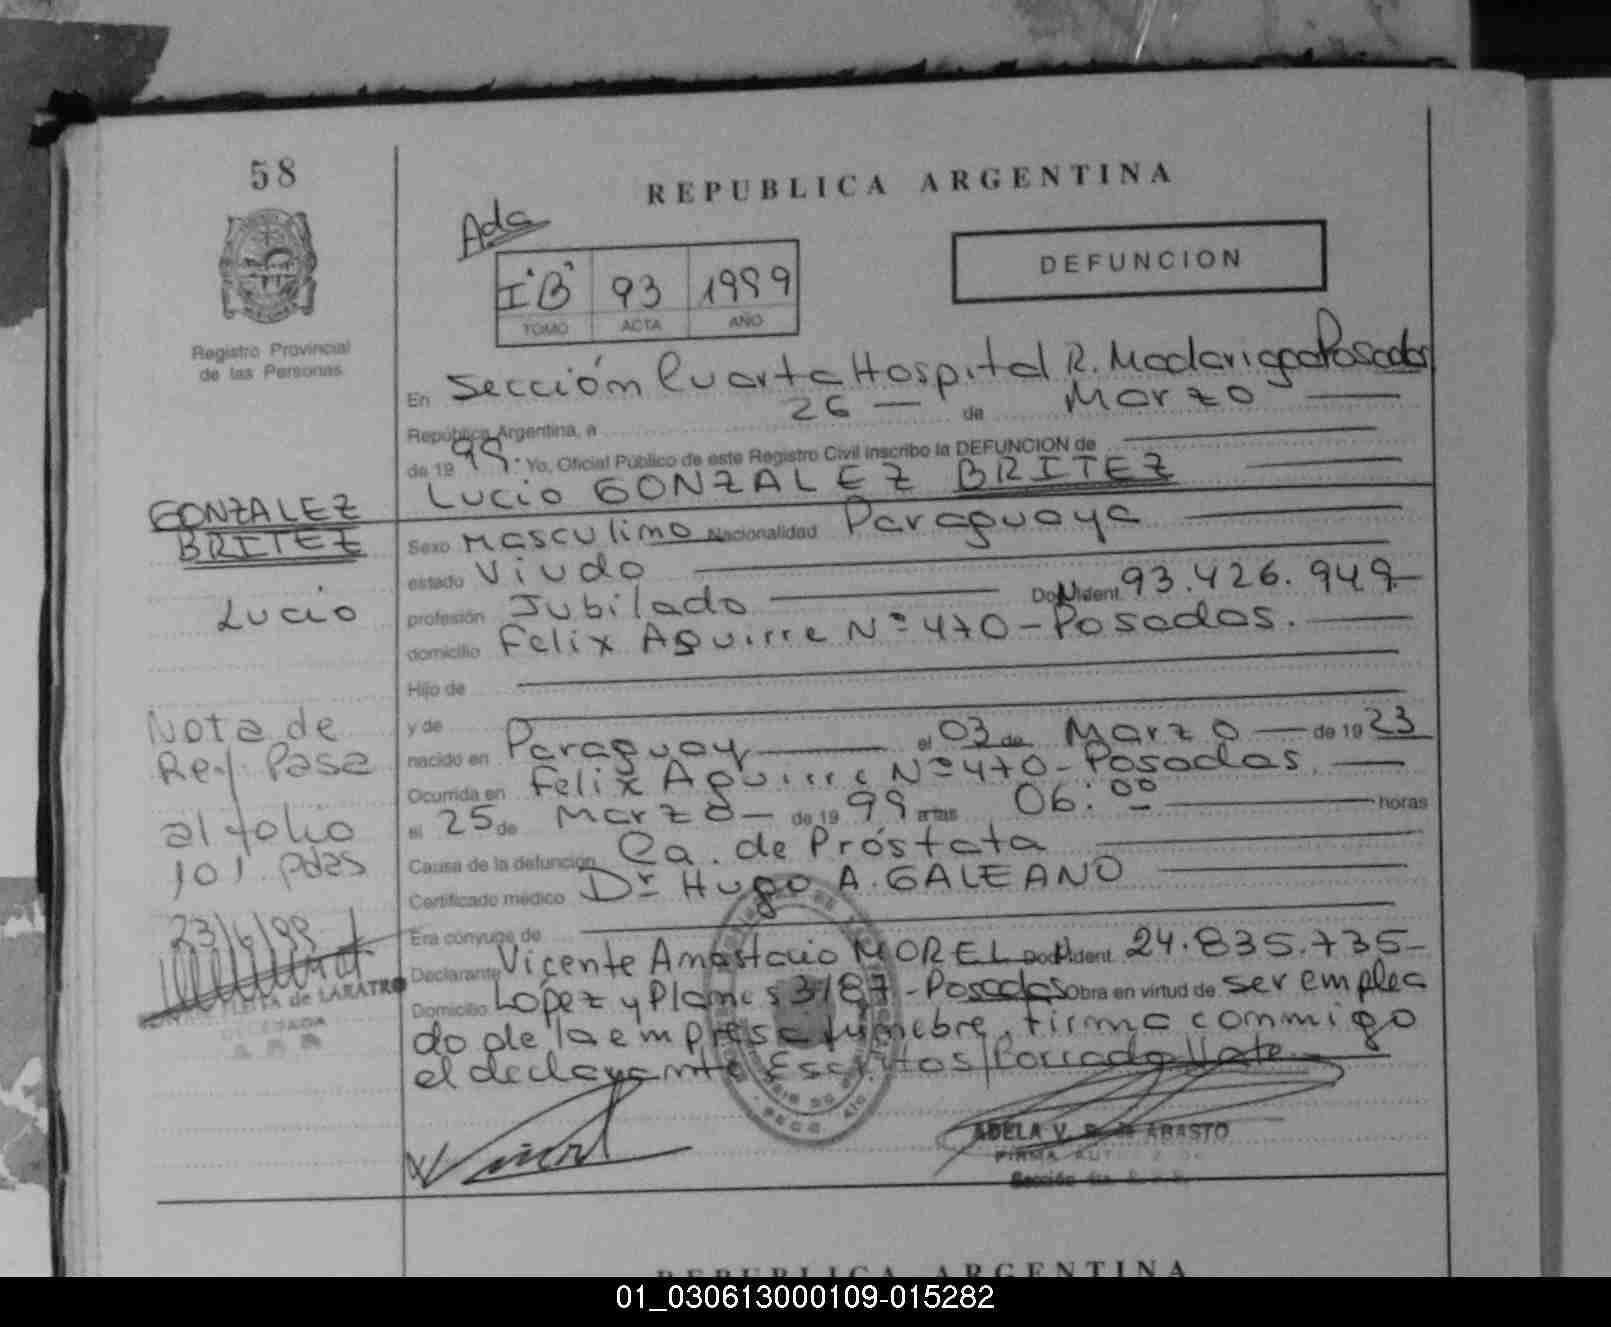 58
REPUBLICA ARGENTINA
Ada
DEFUNCION
I "B" 93 1999
TOMO ACTA AÑO
Registro Provincial
de las Personas
En Sección Cuarta Hospital R. Madariaga Posadas
República Argentina, a 26 — de Marzo
de 19 99. Yo, Oficial Público de este Registro Civil inscribo la DEFUNCION de
Lucio GONZALEZ BRITEZ
GONZALEZ
BRITEZ
Lucio
Sexo Masculino Nacionalidad Paraguaya
estado Viudo
profesión Jubilado Doc. Ident. 93.426.949
domicilio Felix Aguirre Nº 470 - Posadas.
Hijo de
y de
nacido en Paraguay el 03 de Marzo de 1923
Ocurrida en Felix Aguirre Nº 470 - Posadas.
el 25 de Marzo — de 19 99 a las 06:00 horas
Causa de la defunción Ca. de Próstata
Certificado médico Dr Hugo A. GALEANO
Era cónyuge de
Declarante Vicente Anastacio MOREL Doc. Ident. 24.835.735
Domicilio López y Planes 3187 - Posadas Obra en virtud de ser emplea
do de la empresa fúnebre, firma conmigo
el declarante Escritos/Vale
Nota de
Ref. Pasa
al folio
101 pdas
23/6/99
de LARATRO
DELEGADA
ADELA V. ABASTO
FIRMA
Sección 4ta.
REPUBLICA ARGENTINA
01_030613000109-015282